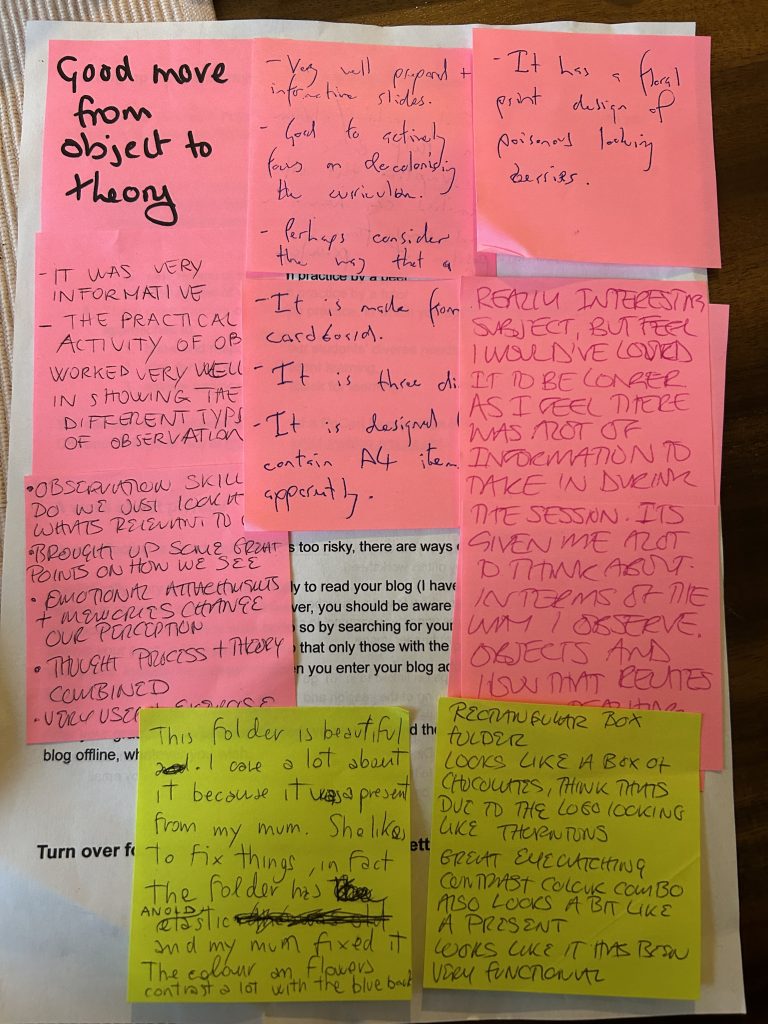 Good move
from
object to
theory
- Very well prepared +
informative slides.
- Good to actively
focus on decolonising
the curriculum.
- Perhaps consider
the way that a
- It has a floral
print design of
poisonous looking
berries.
n practice by a peer
- IT WAS VERY
INFORMATIVE
- THE PRACTICAL
ACTIVITY OF OB
WORKED VERY WELL
IN SHOWING THE
DIFFERENT TYPS
OF OBSERVATION
- It is made from
cardboard.
- It is three di
- It is designed
contain A4 item
apparently.
REALLY INTERESTING
SUBJECT, BUT FEEL
I WOULD'VE LOVED
IT TO BE LONGER
AS I FEEL THERE
WAS ALOT OF
INFORMATION TO
TAKE IN DURING
THE SESSION. ITS
GIVEN ME ALOT
TO THINK ABOUT.
IN TERMS OF THE
WAY I OBSERVE.
OBJECTS AND
HOW THAT RELATES
• OBSERVATION SKILL
DO WE JUST LOOK AT
WHATS RELEVANT TO
• BROUGHT UP SOME GREAT
POINTS ON HOW WE SEE
• EMOTIONAL ATTACHMENTS
+ MEMORIES CHANGE
OUR PERCEPTION
• THOUGHT PROCESS + THEORY
COMBINED
• VERY USEFUL EXERCISE
s too risky, there are ways
ly to read your blog (I have
ver, you should be aware
so by searching for your
that only those with the
n you enter your blog ad
d the
blog offline, wh
Turn over fo
ett
This folder is beautiful
and. I care a lot about
it because it was a present
from my mum. She likes
to fix things, in fact
the folder has
AN OLD
elastic
and my mum fixed it
The colour on flowers
contrast a lot with the blue back
RECTANGULAR BOX
FOLDER
LOOKS LIKE A BOX OF
CHOCOLATES, THINK THATS
DUE TO THE LOGO LOOKING
LIKE THORNTONS
GREAT EYECATCHING
CONTRAST COLOUR COMBO
ALSO LOOKS A BIT LIKE
A PRESENT
LOOKS LIKE IT HAS BEEN
VERY FUNCTIONAL